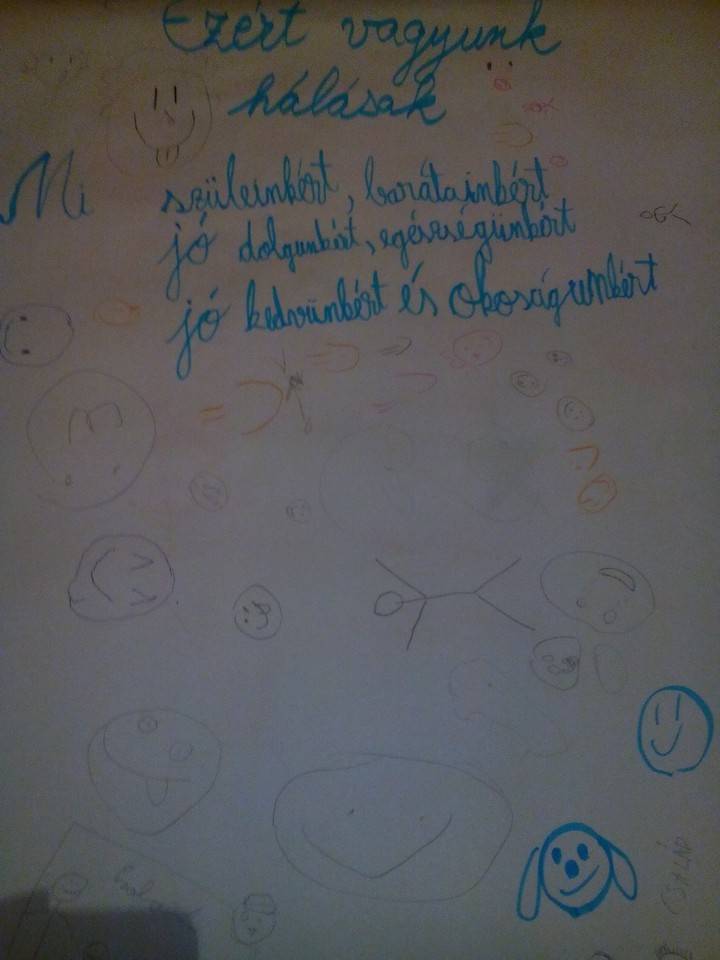 Ezért vagyunk
hálásak
Mi szüleinkért, barátainkért
jó dolgunkért, egészségünkért
jó kedvünkért és okoságunkért